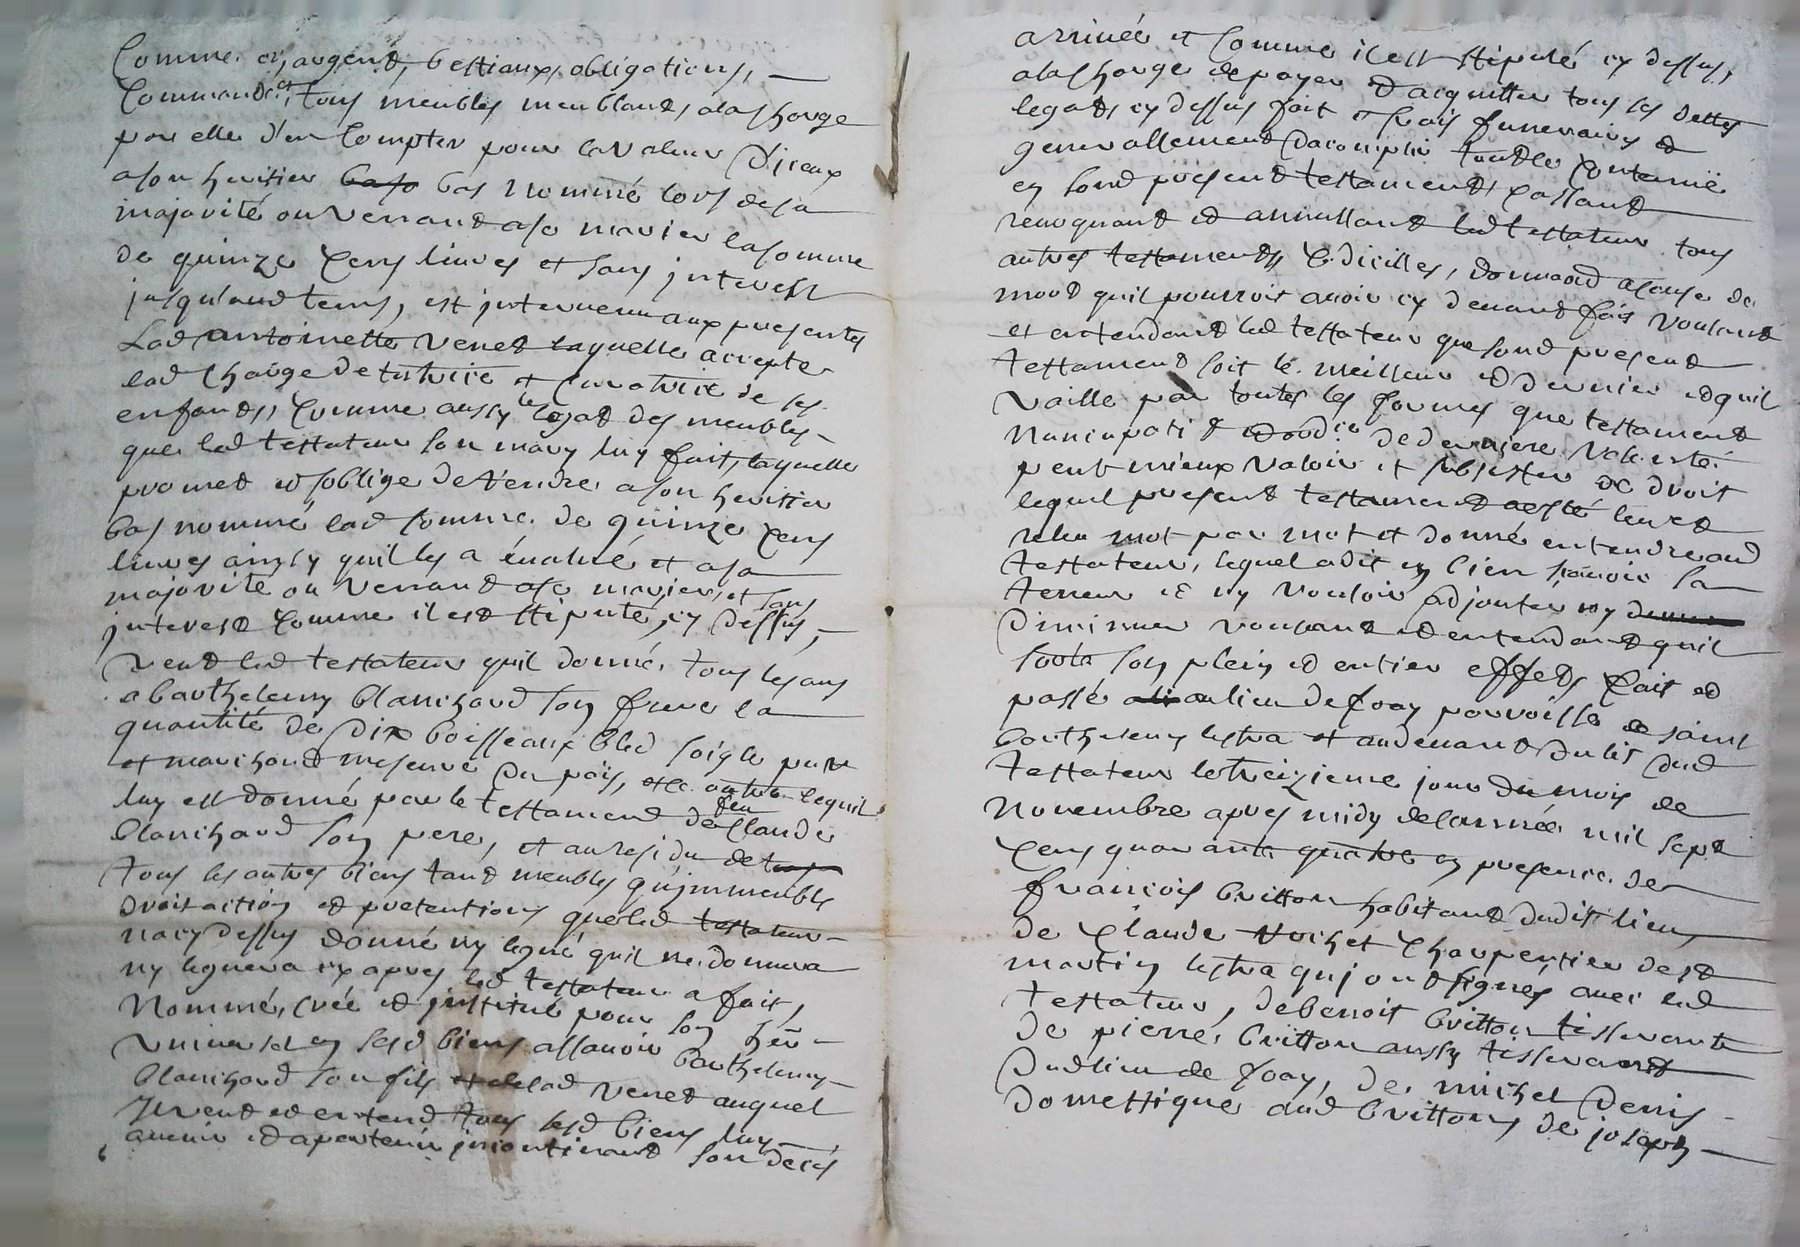 comme en argent, bestiaux, obligations,
commandes, tous meubles meublants, a la charge
par elle d'en compter pour la valeur d'iceux
a son heritier bas nommé lors de sa
majorité ou venant a se marier la somme
de quinze cens livres et sans interest
jusqu'aud tems, est intervenu aux presentes
Lad antoinette venet laquelle accepte
lad charge de tutrice et curatrice de ses
enfants, comme aussy le legat des meubles
que led testateur son mary luy fait, laquelle
promet et s'oblige de rendre a son heritier
bas nommé lad somme de quinze cens
livres ainsy qu'il les a évalué et a sa
majorité ou venant a se marier, et sans
interest comme il est stipulé, cy dessus,
veut led testateur quil donné tous les ans
a barthelemy blanchard son frere la
quantité de dix boisseaux bled soigle pure
et marchand mesure du païs, outre lequil
luy est donné par le testament de feu Claude
blanchard son pere, et au residu de
tous les autres biens tant meubles qu'jmmeubles
droit action et pretentions que led testateur
na cy dessus donné ny legué quil ne donnera
ny leguera cy apres led testateur a fait,
Nommé, créé et jnstitué pour son her
universel en sesd biens assavoir barthelemy
blanchard son fils et de lad venet auquel
Jl veut et entend tous sesd biens luy
avenir et apartenir jncontinant son decés
arrivée et comme il est stipulé cy dessus,
a la charge de payer et acquitter tous ses dettes
legats cy dessus fait et frais funeraires et
generallement d'acomplir tout le contenuë
en sond present testament, cassant
revoquant et annullant led testateur tous
autres testaments, codicilles, donnaõn a cause de
mort quil pourroit avoir cy devant fais voulant
et entendant led testateur que sond present
testament soit le meilleur et dernier et quil
vaille par toutes les formes que testament
Nuncupatif et de derniere volonté
peut mieux valoir et subsister de droit
lequel present testament aesté leu et
releu mot par mot et donné entendre aud
testateur, lequel a dit en bien sçavoir la
teneur et ny vouloir adjouter ny
Diminuer voulant et entendant quil
sorte son plein et entier effets fait et
passé au lieu de foay parroisse de saint
barthelemy lestra et au devant du lit dud
testateur le treizieme jour du mois de
Novembre apres midy de lannée mil sept
cens quarante quatre en presence de
françois britton habitant dudit lieu,
de Claude Charpentier de st
martin lestra qui ont signés avec led
testateur, de benoit britton tisserant
de pierre britton aussy tisserant
Dudlieu de foay, de michel Denis
Domestique aud britton, de joseph